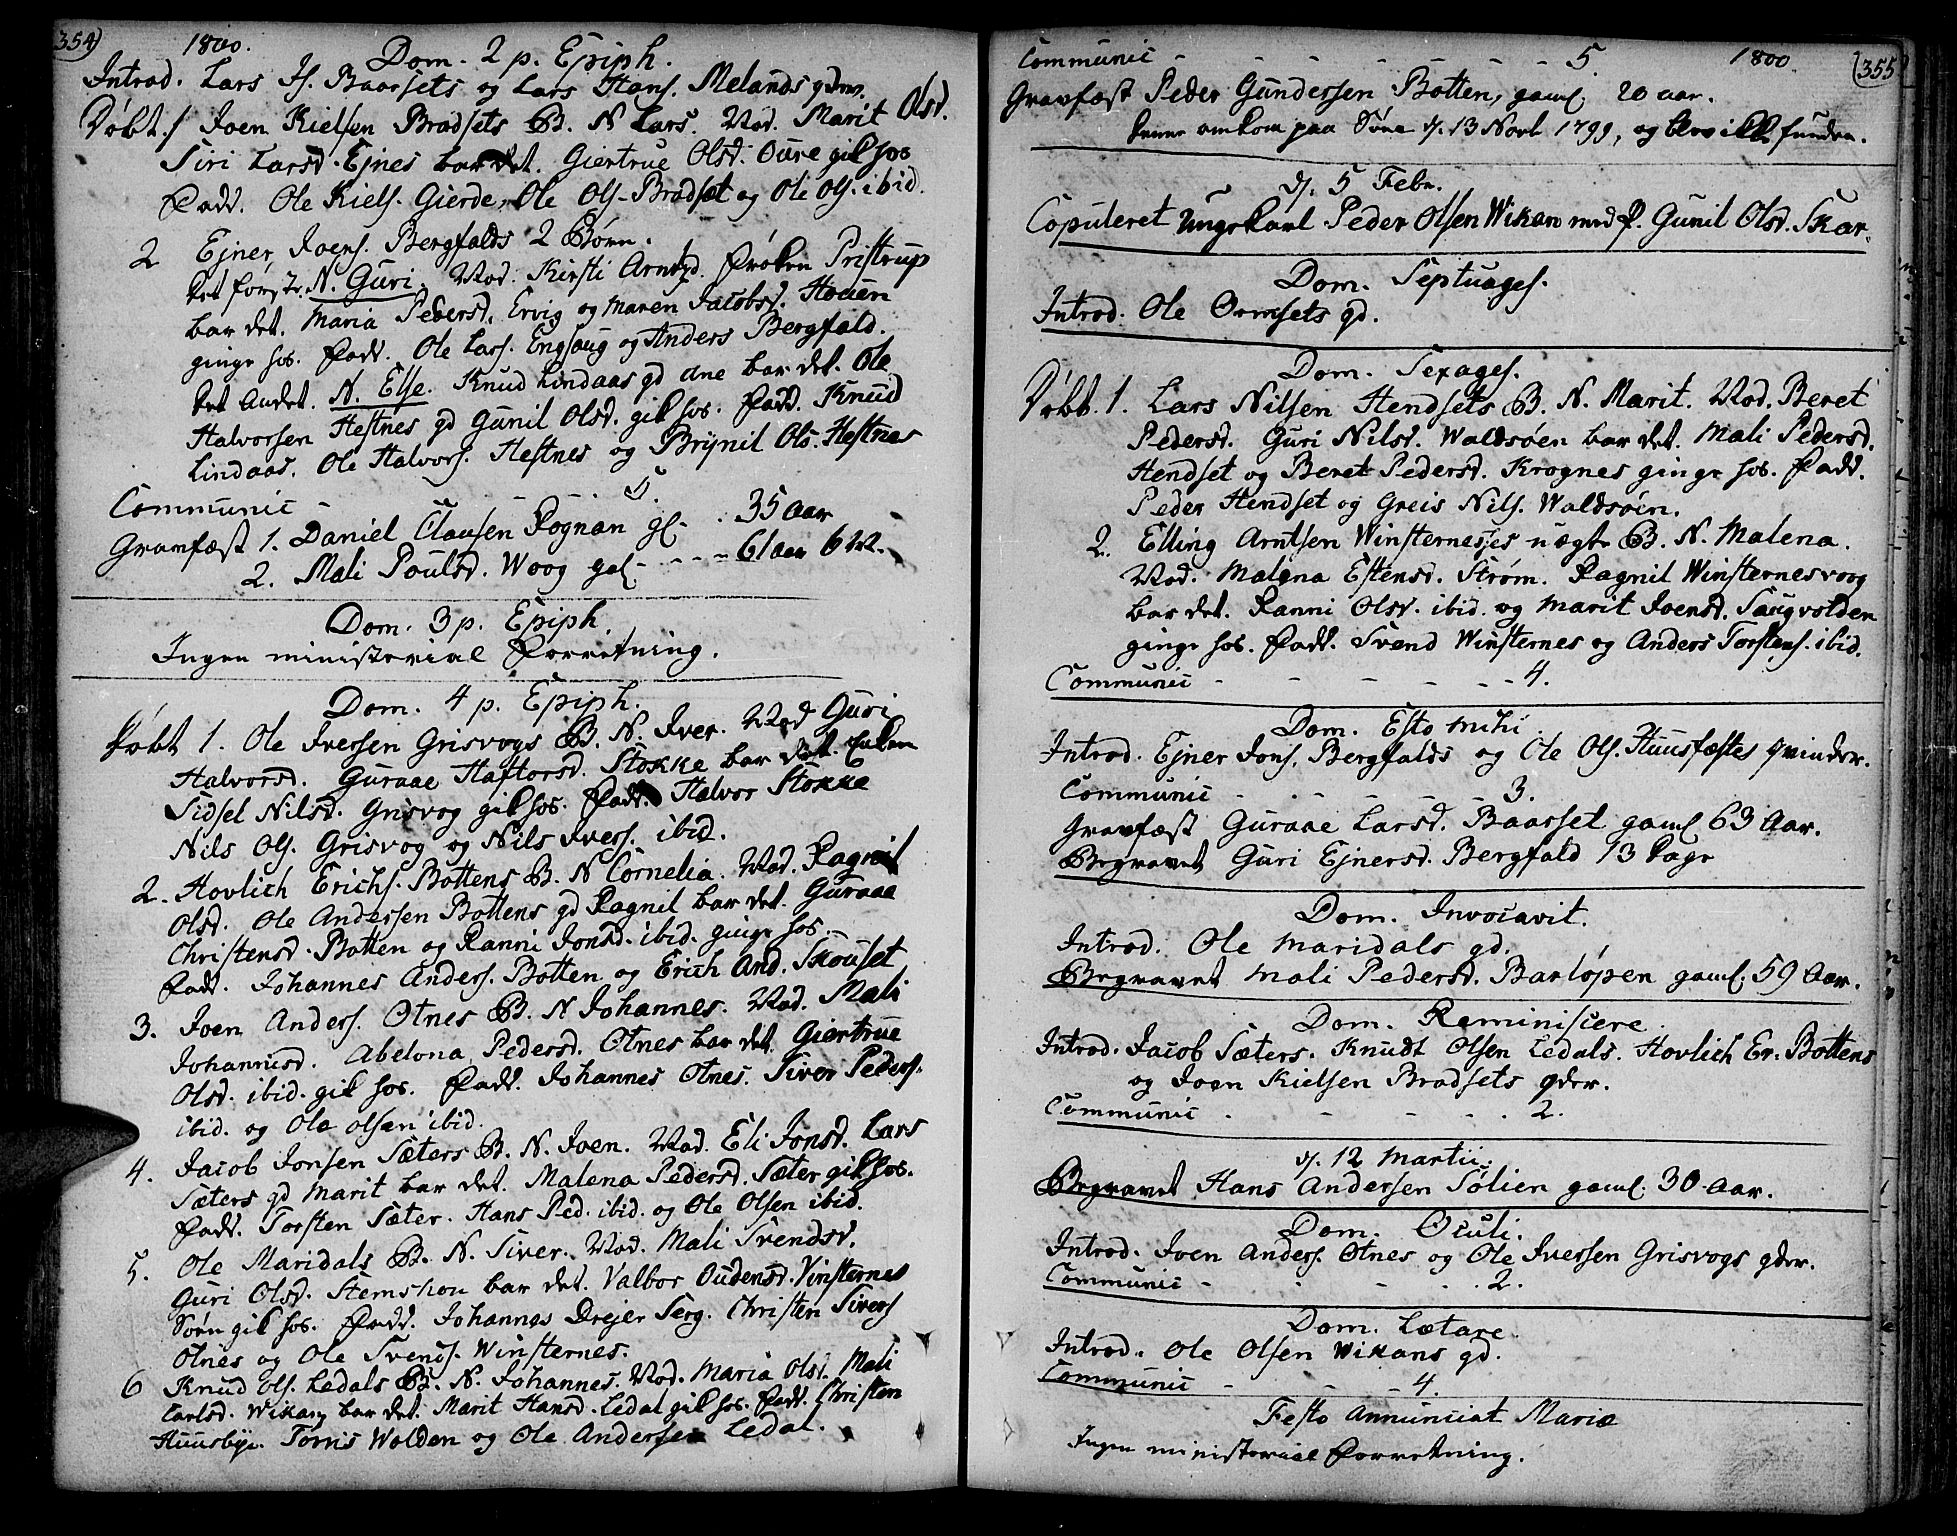 354) 1800.
Dom. 2 p. Epiph.
Introd. Lars Js. Baarsets og Lars Hans. Melands qdrr.
Döbt. 1 Joen Kielsen Bradsets B. N Lars. Mod. Marit Olsd.
Siri Larsd. Ejnes bar det. Giertrue Olsd. Oure gik hos
Fadd. Ole Kiels. Gierde, Ole Ols. Bradset og Ole Ols. ibid.
2 Ejner Joens. Bergfalds 2 Børn.
det första. N. Guri. Mod. Kirsti Arntsd. Frøken Pristrup
bar det. Maria Pedersd. Ervig og Maren Jacobsd. Houen
ginge hos. Fadd. Ole Lars. Engsaug og Anders Bergfald.
det Andet. N. Else. Knud Lindaas qd ane bar det. Ole
Halvorsen Hestnes qd Gunil Olsd. gik hos. Fadd. Knud
Lindaas. Ole Halvors. Hestnes og Brynil Ols. Hestnes
Communic - - 5.
Gravfæst 1. Daniel Clausen Rognan gl - . 35 Aar
2. Mali Poulsd. Woog gal - - - - 61 aar 6 M.
Dom. 3 p. Epiph.
Ingen ministerial Forretning.
Dom. 4 p. Epiph.
Döbt 1. Ole Iversen Grisvogs B. N. Iver. Mod Guri
Halvorsd. Guraae Haftorsd. Stokke bar det. Enken
Sidsel Nilsd. Grisvog gik hos. Fadd. Halvor Stokke
Nils Ols. Grisvog og Nils Ivers. ibid.
2. Hovlich Erichs. Bottens B. N Cornelia. Mod. Ragnil
Olsd. Ole Andersen Bottens qd Ragnil bar det. Guraae
Christensd. Botten og Ranni Jonsd. ibid. ginge hos.
Fadd. Johannes Anders. Botten og Erich And. Skouset
3. Joen Anders. Otnes B. N Johannes. Mod. Mali
Johannisd. Abelona Pedersd. Otnes bar det. Giertrue
Olsd. ibid. gik hos. Fadd. Johannes Otnes. Siver Peders.
ibid. og Ole olsen ibid.
4. Jacob Jonsen Sæters B. N. Joen. Mod. Eli Jonsd. Lars
Sæters qd Marit bar det. Malena Pedersd. Sæter gik hos.
Fadd. Torsten Sæter. Hans Ped. ibid. og Ole Olsen ibid.
5. Ole Maridals B. N. Siver. Mod. Mali Svendsd.
Guri Olsd. Stemshou bar det. Valbor Oudensd. Vinsternes
Sörn gik hos. Fadd. Johannes Drejer Serg. Christen Sivers
Otnes og Ole Svends. Winsternes.
6 Knud Ols. Ledals B. N. Johannes. Mod. Maria Olsd. Mali
Carlsd. Wikans bar det. Marit Hansd. Ledal gik hos. Fadd. Christen
Huusbye. Tornis Wolden og Ole Andersen Ledal.
Communic - - - - - - - 5. 1800. (355)
Gravfæst Peder Gundersen Botten, gaml. 20 aar.
denne omkom paa Söen d. 13 Novb 1799, og blev ikke funden.
d. 5 Febr.
Copuleret Ungekarl Peder Olsen Wikan med P. Gunil Olsd. Skar.
Dom. Septuages.
Introd. Ole Ormsets qd.
Dom. Sexages.
Döbt. 1. Lars Nilsen Hendsets B. N. Marit. Mod. Beret
Pedersd. Guri Nilsd. Waldsöen bar det. Mali Pedersd.
Hendset og Beret Pedersd. Krognes ginge hos. Fadd.
Peder Hendset og Greis Nils. Waldsöen.
2. Elling Arntsen Winsternesses uægte B. N. Malena.
Mod. Malena Estensd. Strøm. Ragnil Winsternesvoog
bar det. Ranni Olsd. ibid. og Marit Joensd. Saugvolden
ginge hos. Fadd. Svend Winsternes og Anders Torstens. ibid.
Communic - - - - - - - 4.
Dom. Esto mihi.
Introd. Ejner Jons. Bergfalds og Ole Ols. Huusfastes qvinder.
Communic - - - - - - 3.
Gravfæst Guraae Larsd. Baarset gaml 63 Aar.
Begravet Guri Ejnersd. Bergfald 13 dage
Dom. Invocavit.
Introd. Ole Maridals qd.
Begravet Mali Pedersd. Barløpen gaml. 59 Aar.
Dom. Reminiscere.
Introd. Jacob Sæters. Knudt Olsen Ledals. Hovlich Er. Bottens
og Joen Kielsen Bradsets qder.
Communic . - - - . 2.
d. 12 Martii.
Begravet Hans Andersen Sölien gaml. 30 Aar.
Dom. Oculi.
Introd. Joen Anders. Otnes og Ole Iversen Grisvogs qder.
Communic - - - . 2.
Dom. Lætare.
Introd. Ole Olsen Wikans qd.
Communic - - - 4.
Festo Annunciat Mariæ
Ingen ministerial Forretning.